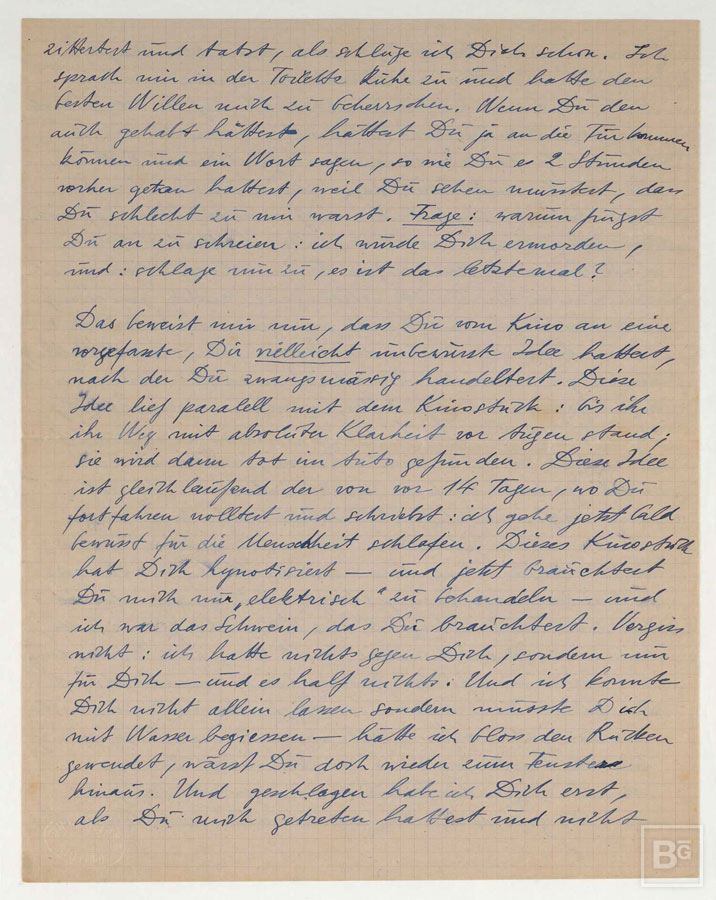 zittertest und tatst, als schlüge ich Dich schon. Ich
sprach mir in der Toilette Ruhe zu und hatte den
besten Willen mich zu beherrschen. Wenn Du den
auch gehabt hättest, hättest Du ja an die Tür kommen
können und ein Wort sagen, so wie Du es 2 Stunden
vorher getan hattest, weil Du sehen musstest, dass
Du schlecht zu mir warst. Frage: warum fingst
Du an zu schreien: ich würde Dich ermorden,
und: schlage nur zu, es ist das letztemal?
Das beweist mir nun, dass Du vom Kino an eine
vorgefasste, Dir vielleicht unbewusste Idee hattest,
nach der Du zwangsmässig handeltest. Diese
Idee lief paralell mit dem Kinostück: bis ihr
ihr Weg mit absoluter Klarheit vor Augen stand;
sie wird dann tot im Auto gefunden. Diese Idee
ist gleichlaufend der von vor 14 Tagen, wo Du
fortfahren wolltest und schriebst: ich gehe jetzt bald
bewusst für die Menschheit schlafen. Dieses Kinostück
hat Dich hypnotisiert — und jetzt brauchtest
Du mich nur „elektrisch“ zu behandeln — und
ich war das Schwein, das Du brauchtest. Vergiss
nicht: ich hatte nichts gegen Dich, sondern nur
für Dich — und es half nichts. Und ich konnte
Dich nicht allein lassen sondern musste Dich
mit Wasser begiessen — hätte ich bloss den Rücken
gewendet, wärst Du doch wieder zum Fenster
hinaus. Und geschlagen habe ich Dich erst,
als Du mich getreten hattest und nicht
BG